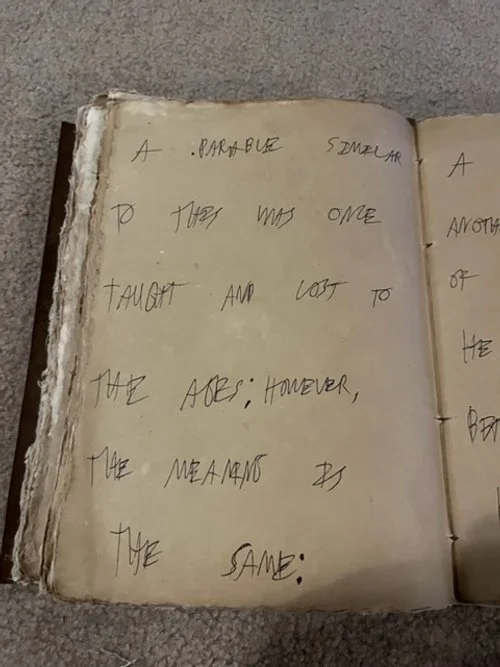 A PARABLE SIMILAR
TO THIS WAS ONCE
TAUGHT AND LOST TO
THE AGES; HOWEVER,
THE MEANING IS
THE SAME:
A
ANOTH
OF
HE
BET